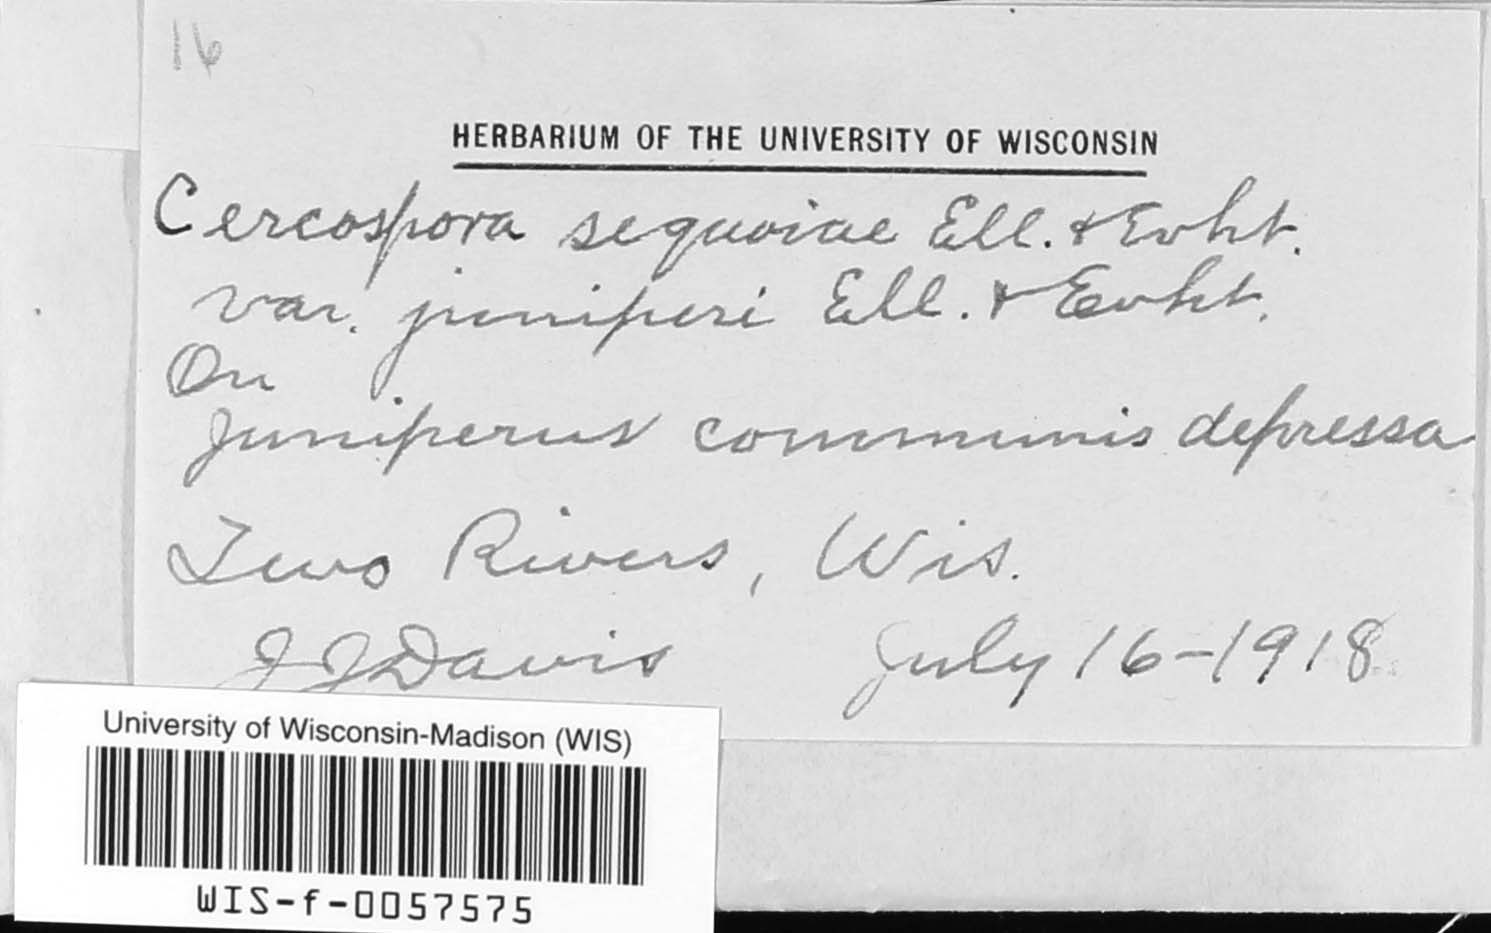 16
HERBARIUM OF THE UNIVERSITY OF WISCONSIN
Cercospora sequoiae Ell. & Evht.
var. juniperi Ell. & Evht.
On
Juniperus communis depressa
Two Rivers, Wis.
J J Davis July 16-1918
University of Wisconsin-Madison (WIS)
WIS-f-0057575